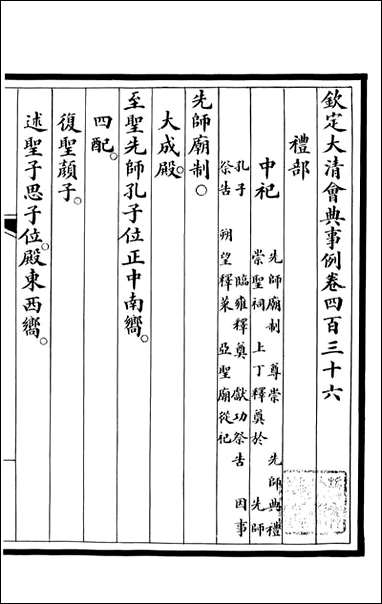 欽定大清會典事例卷四百三十六
禮部
中祀
先師廟制 尊崇 先師典禮
崇聖祠 上丁釋奠於 先師
孔子 臨雍釋奠 獻功祭告 因事
祭告 朔望釋菜 亞聖廟從祀
先師廟制○
大成殿。
至聖先師孔子位正中南嚮。
四配。
復聖顏子。
述聖子思子位。殿東西嚮。